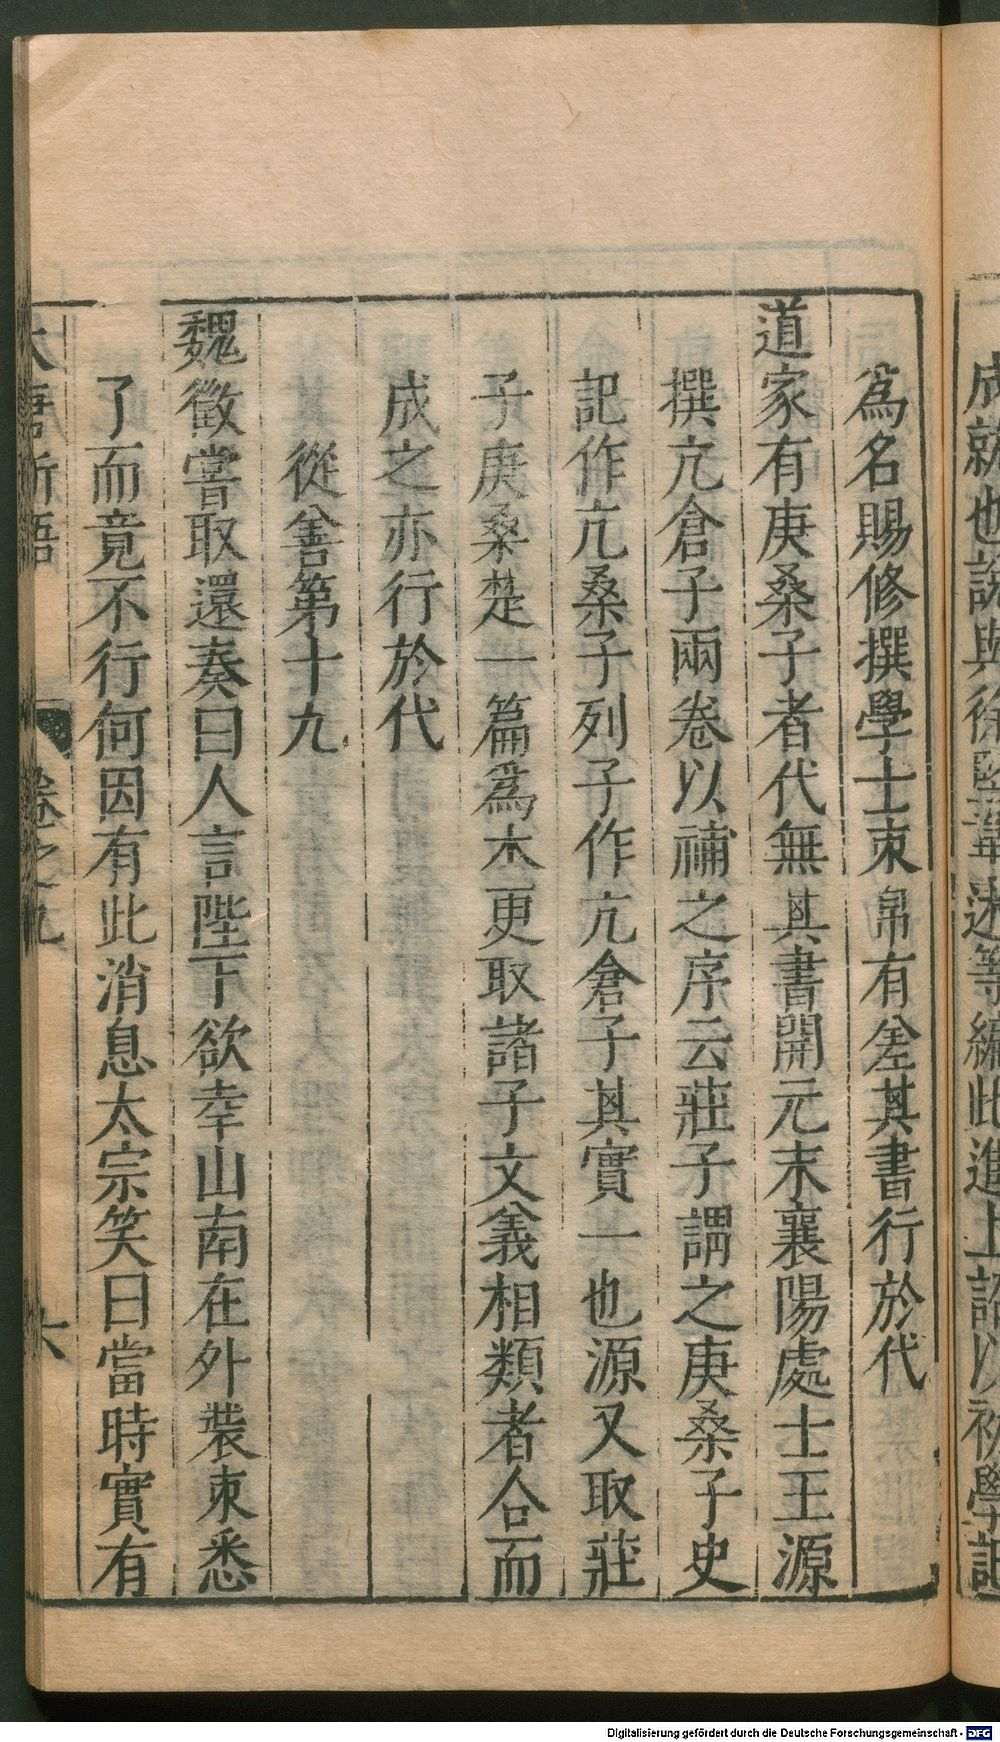 成就也說與徐堅韋述等編此進上詔以初學記
爲名賜修撰學士束帛有差其書行於代
道家有庚桑子者代無其書開元末襄陽處士王源
撰亢倉子兩卷以補之序云莊子謂之庚桑子史
記作亢桑子列子作亢倉子其實一也源又取莊
子庚桑楚一篇爲本更取諸子文義相類者合而
成之亦行於代
從善第十九
魏徵嘗取還奏曰人言陛下欲幸山南在外裝束悉
了而竟不行何因有此消息太宗笑曰當時實有
大唐新語 卷之九 六
Digitalisierung gefördert durch die Deutsche Forschungsgemeinschaft - DFG